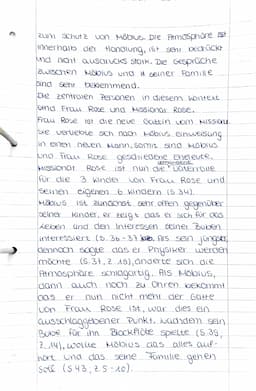 zum Schutz von Möbius. Die Atmosphäre ist
innerhalb der Handlung, ist sehr bedrückt
und nicht ausdrucksstark. Die Gespräche
zwischen Möbius und seiner Familie
sind sehr beklemmend.
Die zentralen Personen in diesem Kontext
sind Frau Rose und Missionar Rose.
Frau Rose ist die neue Gattin vom Missionar
Sie verliebte sich nach Möbius Einweisung
in einen neuen Mann. Somit sind Möbius
und Frau Rose geschiedene Eheleute.
Missionar Rose ist nun die
für die 3 Kinder von Frau Rose und
seinen eigenen 6 Kindern (S.34).
Möbius ist zunächst sehr offen gegenüber
seiner Kinder, er zeigt das er sich für das
Leben und den Interessen seiner Buben
interessiert (S.36-37). Als sein jüngster
dennoch sagte das er Physiker werden
möchte (S.37, Z.18), änderte sich die
Atmosphäre schlagartig. Als Möbius,
dann auch noch zu Ohren bekommt
das er nun nicht mehr der Gatte
von Frau Rose ist, war dies ein
ausschlaggebener Punkt. Nachdem sein
Bube für ihn Blockflöte spielte (S.39,
Z.14), wollte Möbius das alles auf-
hört und das seine Familie gehen
soll (S.43, Z.5-10).